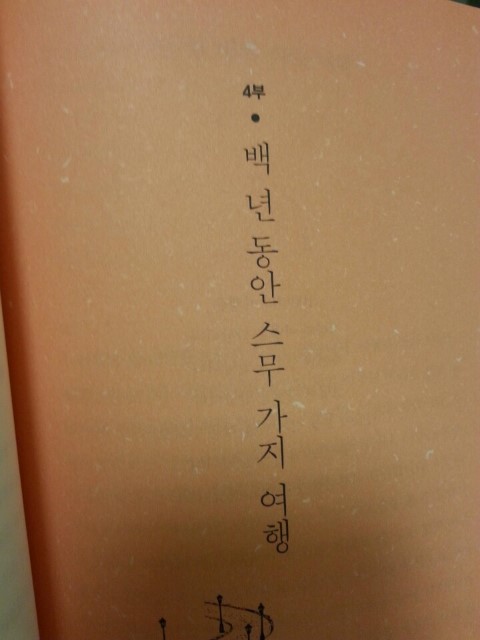 4부
백 년 동안 스무 가지 여행